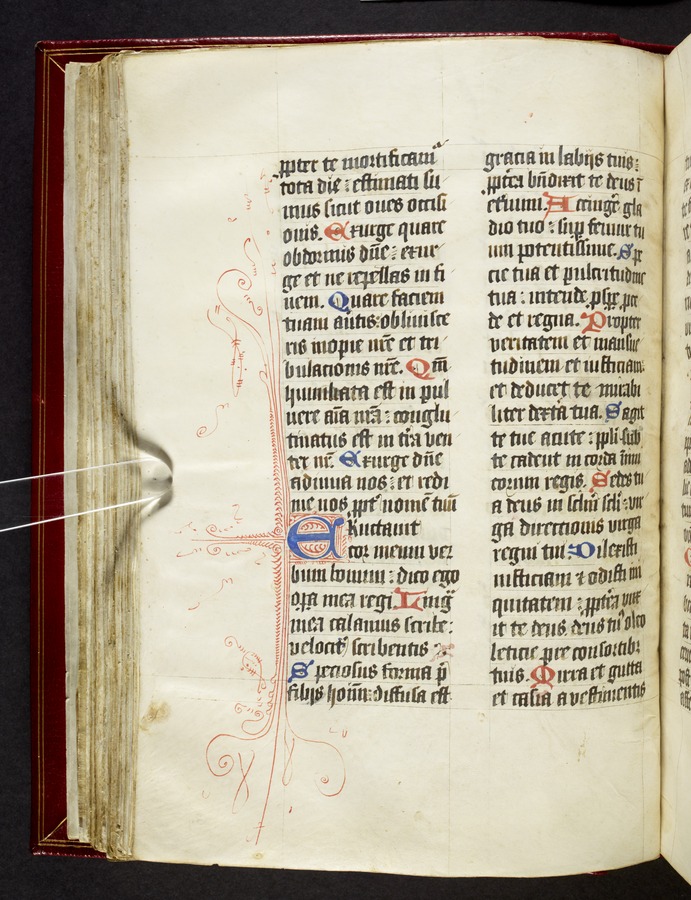 ppter te mortificam̄
tota die : estimati su
mus sicut oues occisi
onis. Exurge quare
obdormis dn̄e : exur
ge et ne repellas in fi
nem. Quare faciem
tuam auertis : obliuisce
ris inopie nr̄e et tri
bulacionis nr̄e. Qm̄
humiliata est in pul
uere aīa nr̄a : conglu
tinatus est in tr̄a ven
ter nr̄. Exurge dn̄e
adiuua nos : et redi
me nos ppt̄ nomē tuū
ERuctauit
cor meum ver
bum bonum : dico ego
opa mea regi. Ling̃
mea calamus scribe :
velocit̄ scribentis
Speciosus forma p̄
filijs hoīm : diffusa est
gracia in labijs tuis :
ppt̄ea bn̄dixit te deus ī
et̄num. Accinge gla
dio tuo : sup femur tu
um potentissime. Spe
cie tua et pulcritudine
tua : intende pspe pce
de et regna. Propter
veritatem et mansue
tudinem et iusticiam :
et deducet te mirabi
liter dext̄a tua. Sagit
te tue acute : ppl̄i sub
te cadent in corda inimi
corum regis. Sedes tu
a deus in sclm̄ scl̄i : vir
ga directionis virga
regni tui. Dilexisti
iusticiam et odisti ini
quitatem : ppt̄ea vnx
it te deus deus tu᷒ oleo
leticie pre consortib᷒
tuis. Mirra et gutta
et casia a vestimentis